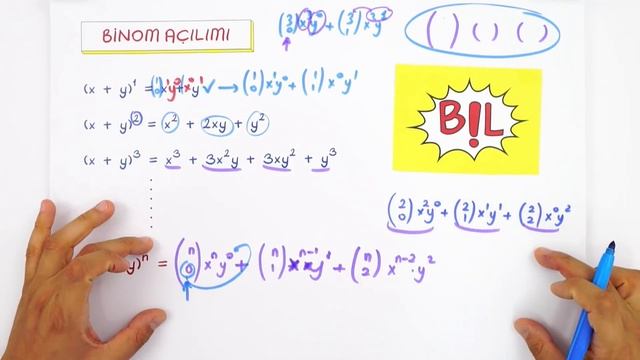 BİNOM AÇILIMI
(3 0) x³y⁰ + (3 1) x²y¹
( ) ( ) ( )
(x + y)¹ = (1 0) x¹y⁰ + x⁰y¹ ✓ → (1 0) x¹y⁰ + (1 1) x⁰y¹
BİL
(x + y)² = x² + 2xy + y²
(x + y)³ = x³ + 3x²y + 3xy² + y³
(2 0) x²y⁰ + (2 1) x¹y¹ + (2 2) x⁰y²
y)ⁿ = (n 0) xⁿy⁰ + (n 1) xⁿ⁻¹·y¹ + (n 2) xⁿ⁻²·y²